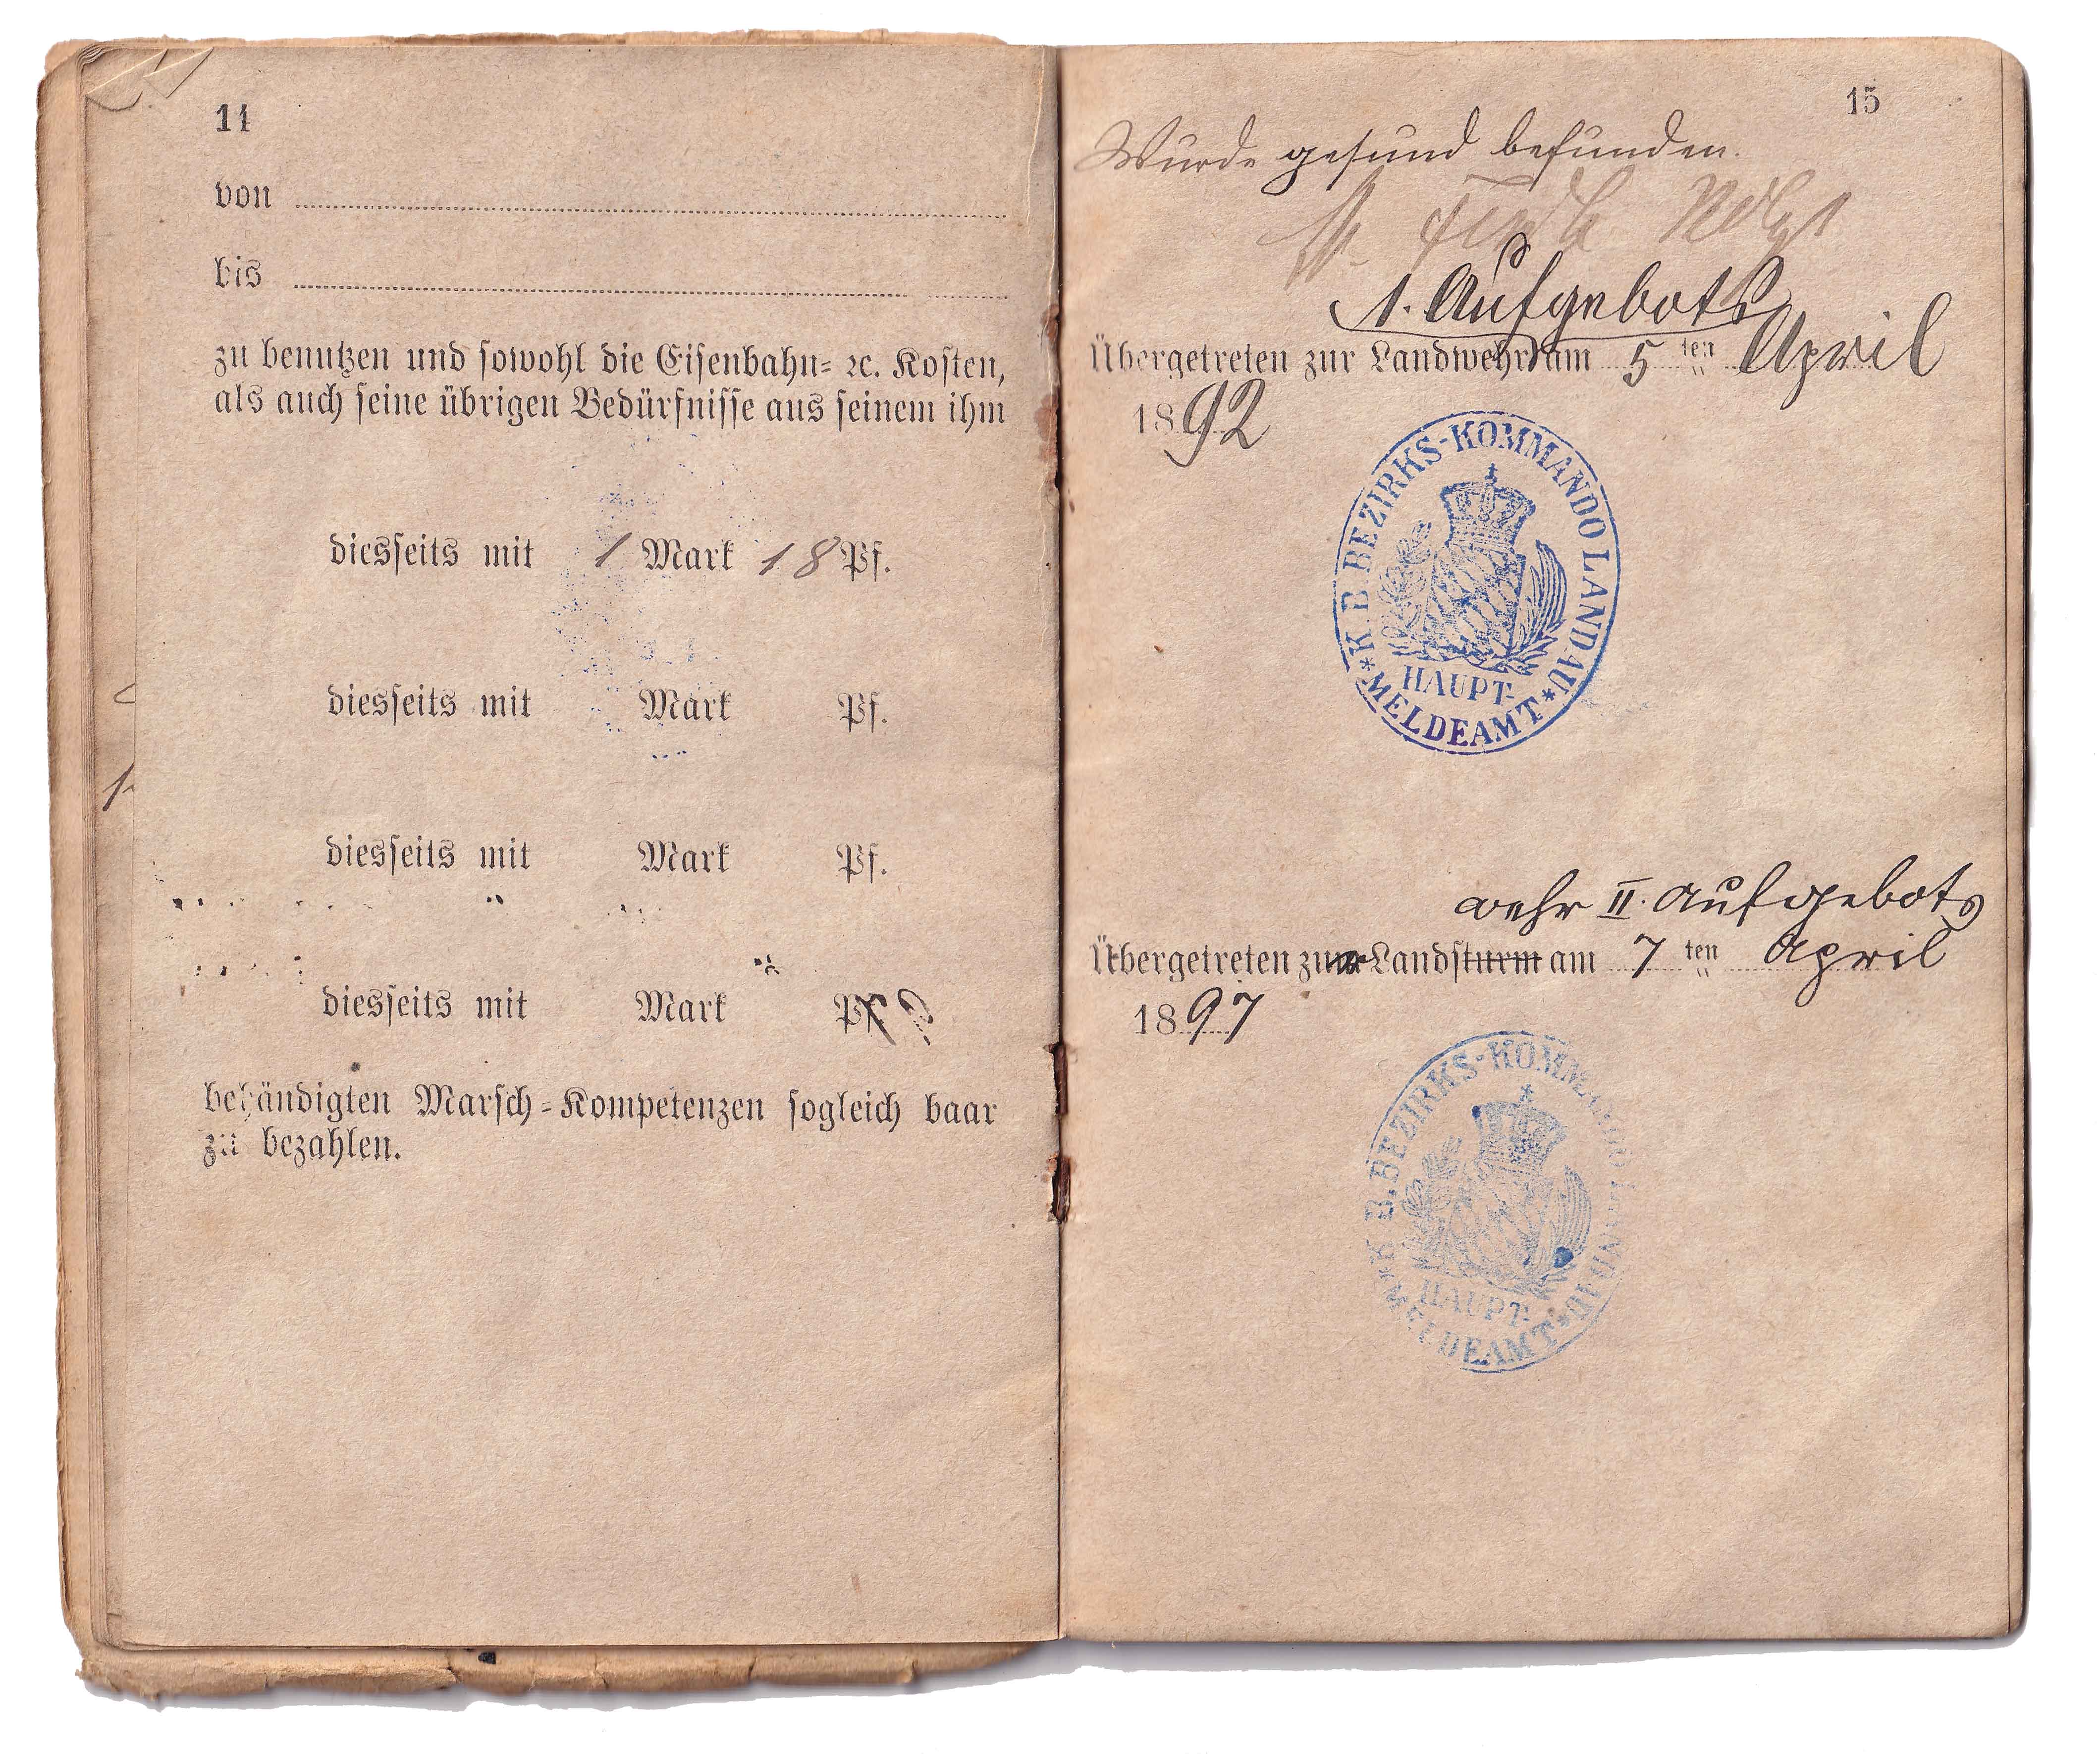 11
von
bis
zu benutzen und sowohl die Eisenbahn= ꝛc. Kosten,
als auch seine übrigen Bedürfnisse aus seinem ihm
diesseits mit 1 Mark 18 Pf.
diesseits mit Mark Pf.
diesseits mit Mark Pf.
diesseits mit Mark Pf.
behändigten Marsch=Kompetenzen sogleich baar
zu bezahlen.
15
Wurde gesund befunden.
1. Aufgebots
Übergetreten zur Landwehr am 5 ten April
1892
K. B. BEZIRKS-KOMMANDO LANDAU
HAUPT-
MELDEAMT
wehr II. Aufgebots
Übergetreten zur Landsturm am 7 ten April
1897
K. B. BEZIRKS-KOMMANDO LANDAU
HAUPT-
MELDEAMT